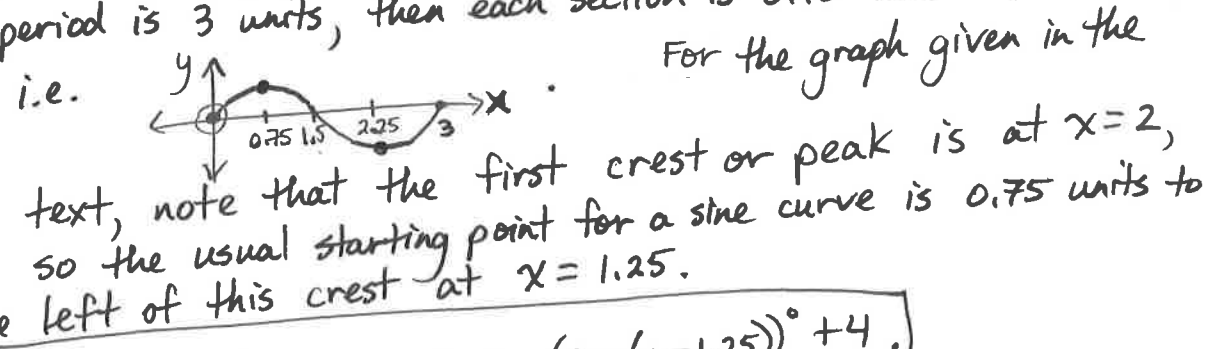 period is 3 units, then each
i.e.
y
x
0.75 1.5 2.25 3
For the graph given in the
text, note that the first crest or peak is at x=2,
so the usual starting point for a sine curve is 0.75 units to
left of this crest at x = 1.25.
))° +4